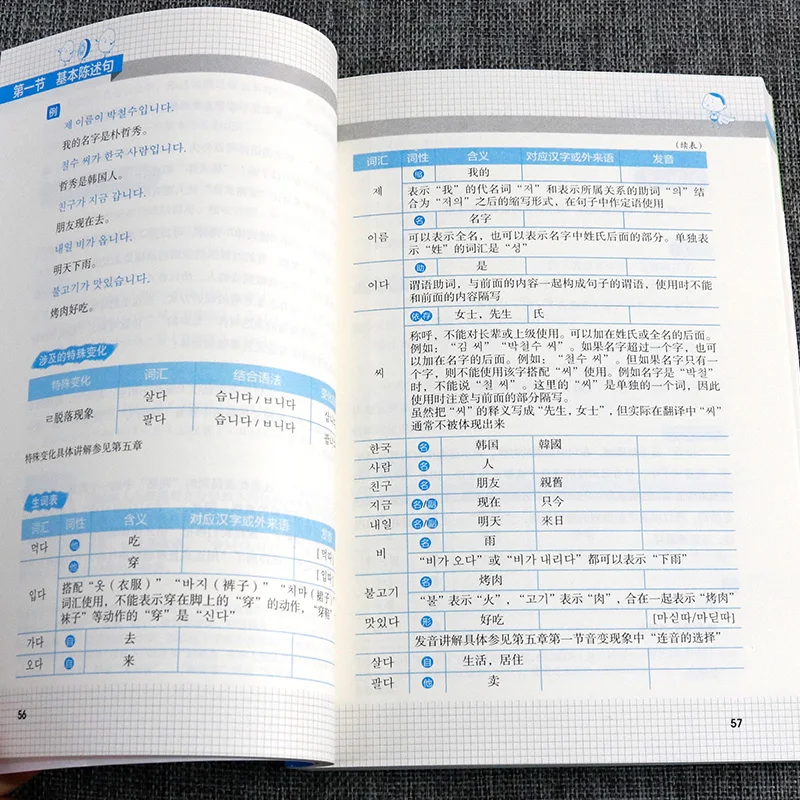 第一节 基本陈述句
例
제 이름이 박철수입니다.
我的名字是朴哲秀。
철수 씨가 한국 사람입니다.
哲秀是韩国人。
친구가 지금 갑니다.
朋友现在去。
내일 비가 옵니다.
明天下雨。
불고기가 맛있습니다.
烤肉好吃。
涉及的特殊变化
特殊变化 词汇 结合语法
ㄹ脱落现象 살다 습니다 / ㅂ니다
팔다 습니다 / ㅂ니다
特殊变化具体讲解参见第五章
生词表
词汇 词性 含义 对应汉字或外来语 发音
먹다 他 吃 [먹다]
입다 他 穿 [입따]
搭配“옷(衣服)”“바지(裤子)”“치마(裙子)”
词汇使用，不能表示穿在脚上的“穿”的动作，“穿鞋
袜子”等动作的“穿”是“신다”
가다 自 去
오다 自 来
56
(续表)
词汇 词性 含义 对应汉字或外来语 发音
제 我的
表示“我”的代名词“저”和表示所属关系的助词“의”结
合为“저의”之后的缩写形式，在句子中作定语使用
이름 名 名字
可以表示全名，也可以表示名字中姓氏后面的部分。单独表
示“姓”的词汇是“성”
이다 助 是
谓语助词，与前面的内容一起构成句子的谓语，使用时不能
和前面的内容隔写
씨 依存 女士，先生 氏
称呼，不能对长辈或上级使用。可以加在姓氏或全名的后面。
例如：“김 씨”“박철수 씨”。如果名字超过一个字，也可
以加在名字的后面。例如：“철수 씨”。但如果名字只有一
个字，则不能使用该字搭配“씨”使用。例如名字是“박철”
时，不能说“철 씨”。这里的“씨”是单独的一个词，因此
使用时注意与前面的部分隔写。
虽然把“씨”的释义写成“先生，女士”，但实际在翻译中“씨”
通常不被体现出来
한국 名 韩国 韓國
사람 名 人
친구 名 朋友 親舊
지금 名/副 现在 只今
내일 名/副 明天 來日
비 名 雨
“비가 오다”或“비가 내리다”都可以表示“下雨”
불고기 名 烤肉
“불”表示“火”，“고기”表示“肉”，合在一起表示“烤肉”
맛있다 形 好吃 [마싣따/마딛따]
发音讲解具体参见第五章第一节音变现象中“连音的选择”
살다 自 生活，居住
팔다 他 卖
57